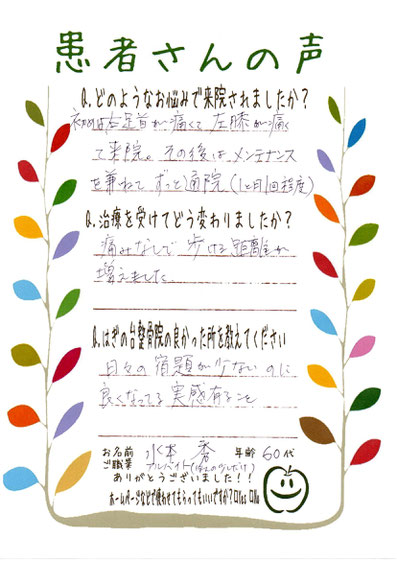 患者さんの声
Q.どのようなお悩みで来院されましたか?
初めは右足首が痛くて左膝が痛く
て来院。その後はメンテナンス
を兼ねてずっと通院(1ヶ月1回程度)
Q.治療を受けてどう変わりましたか?
痛みなしで歩ける距離が
増えました
Q.はぎの台整骨院の良かった所を教えてください
日々の宿題が少ないのに
良くなってる実感有ること
お名前 水本 年齢 60代
ご職業 アルバイト
ありがとうございました!!
ホームページなどで使わせてもらってもいいですか?□Yes □No